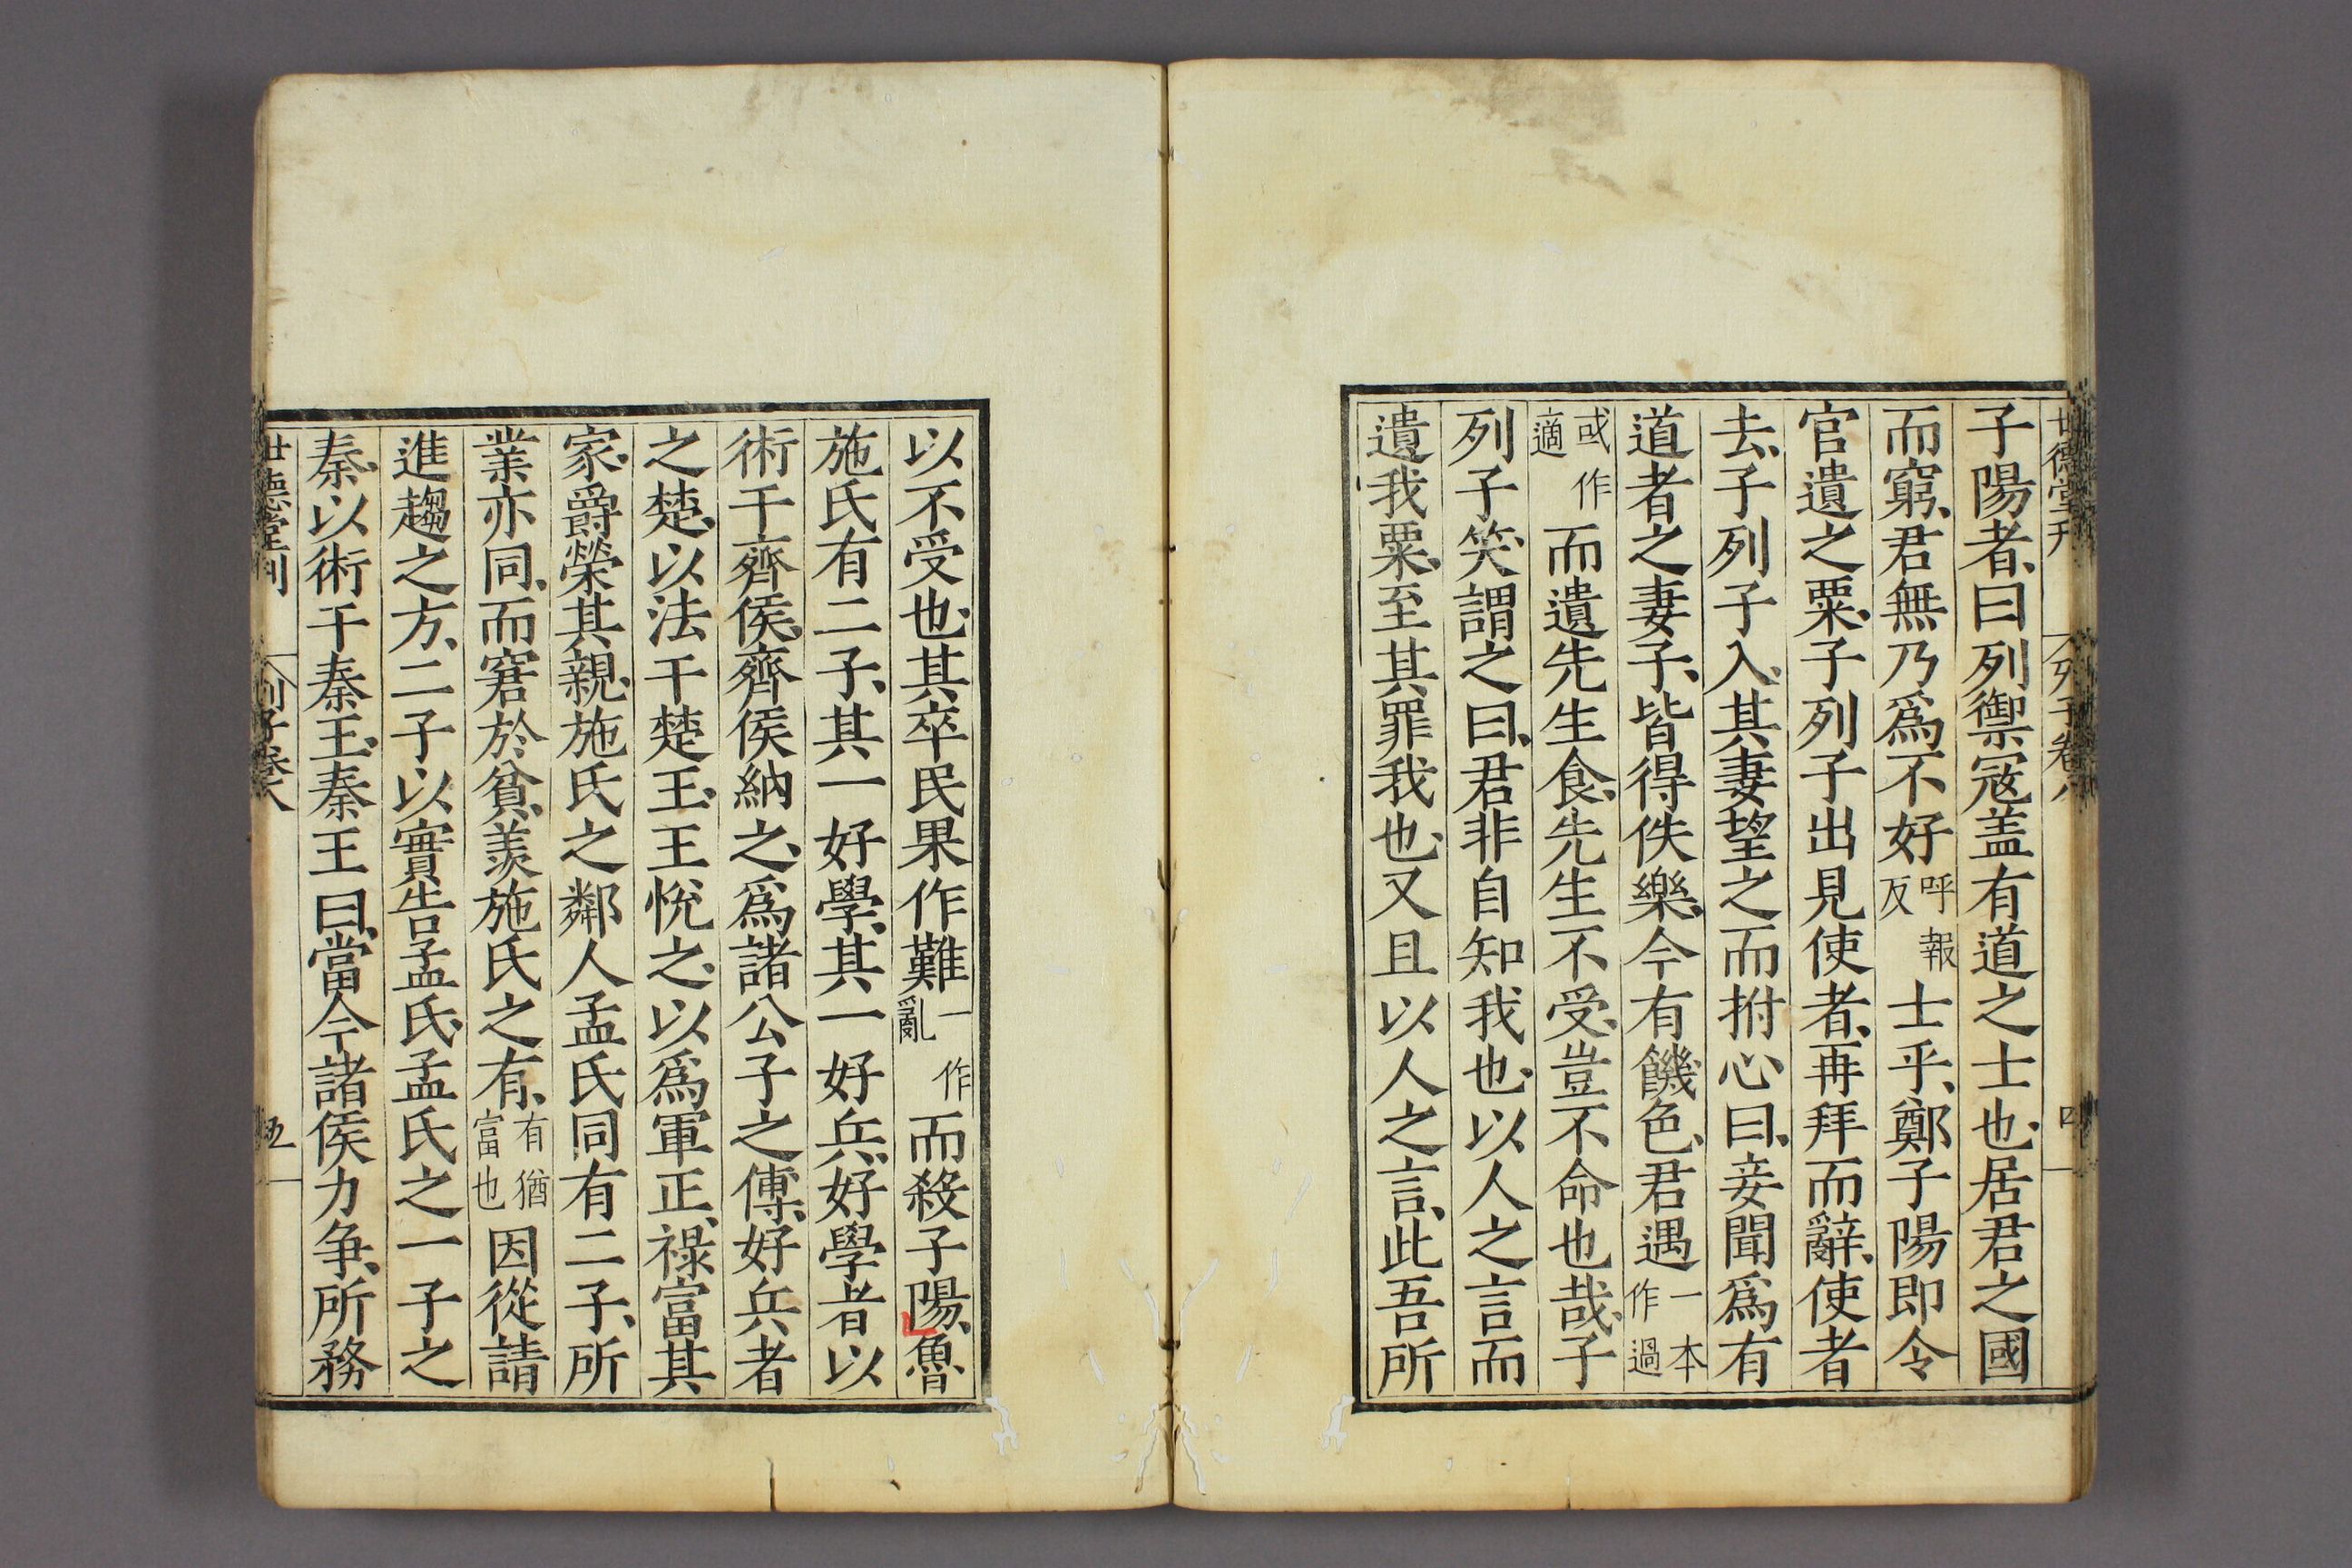 世德堂刊 列子卷八 四
子陽者曰列禦寇盖有道之士也居君之國
而窮君無乃爲不好呼報反士乎鄭子陽即令
官遺之粟子列子出見使者再拜而辭使者
去子列子入其妻望之而拊心曰妾聞爲有
道者之妻子皆得佚樂今有饑色君遇一本作過
或作適而遺先生食先生不受豈不命也哉子
列子笑謂之曰君非自知我也以人之言而
遺我粟至其罪我也又且以人之言此吾所
以不受也其卒民果作難一作亂而殺子陽魯
施氏有二子其一好學其一好兵好學者以
術干齊侯齊侯納之爲諸公子之傅好兵者
之楚以法干楚王王悅之以爲軍正祿富其
家爵榮其親施氏之鄰人孟氏同有二子所
業亦同而窘於貧羨施氏之有有猶富也因從請
進趨之方二子以實告孟氏孟氏之一子之
秦以術干秦王秦王曰當今諸侯力争所務
世德堂刊 列子卷八 五